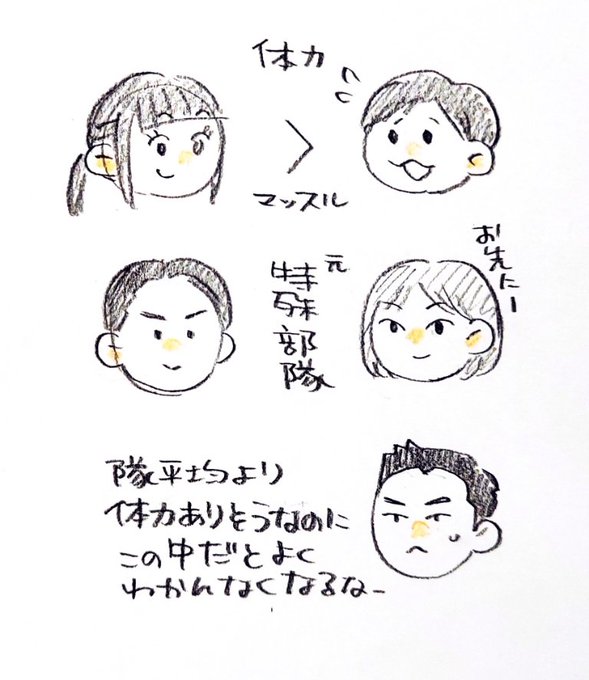 体力
>
マッスル
元
特殊部隊
お先にー
隊平均より
体力ありそうなのに
この中だとよく
わかんなくなるなー